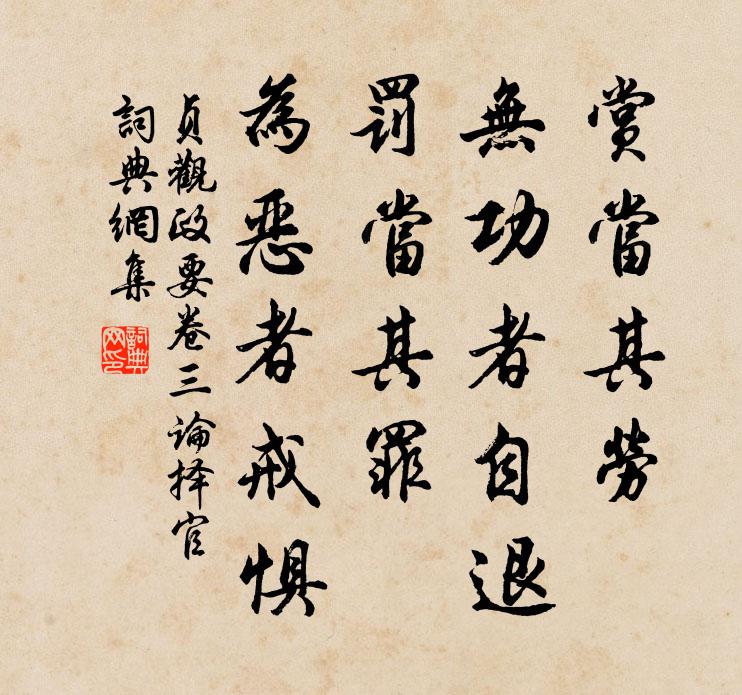 賞當其勞
無功者自退
罰當其罪
為惡者戒懼
貞觀政要卷三論择官
詞典網集
詞典
网印